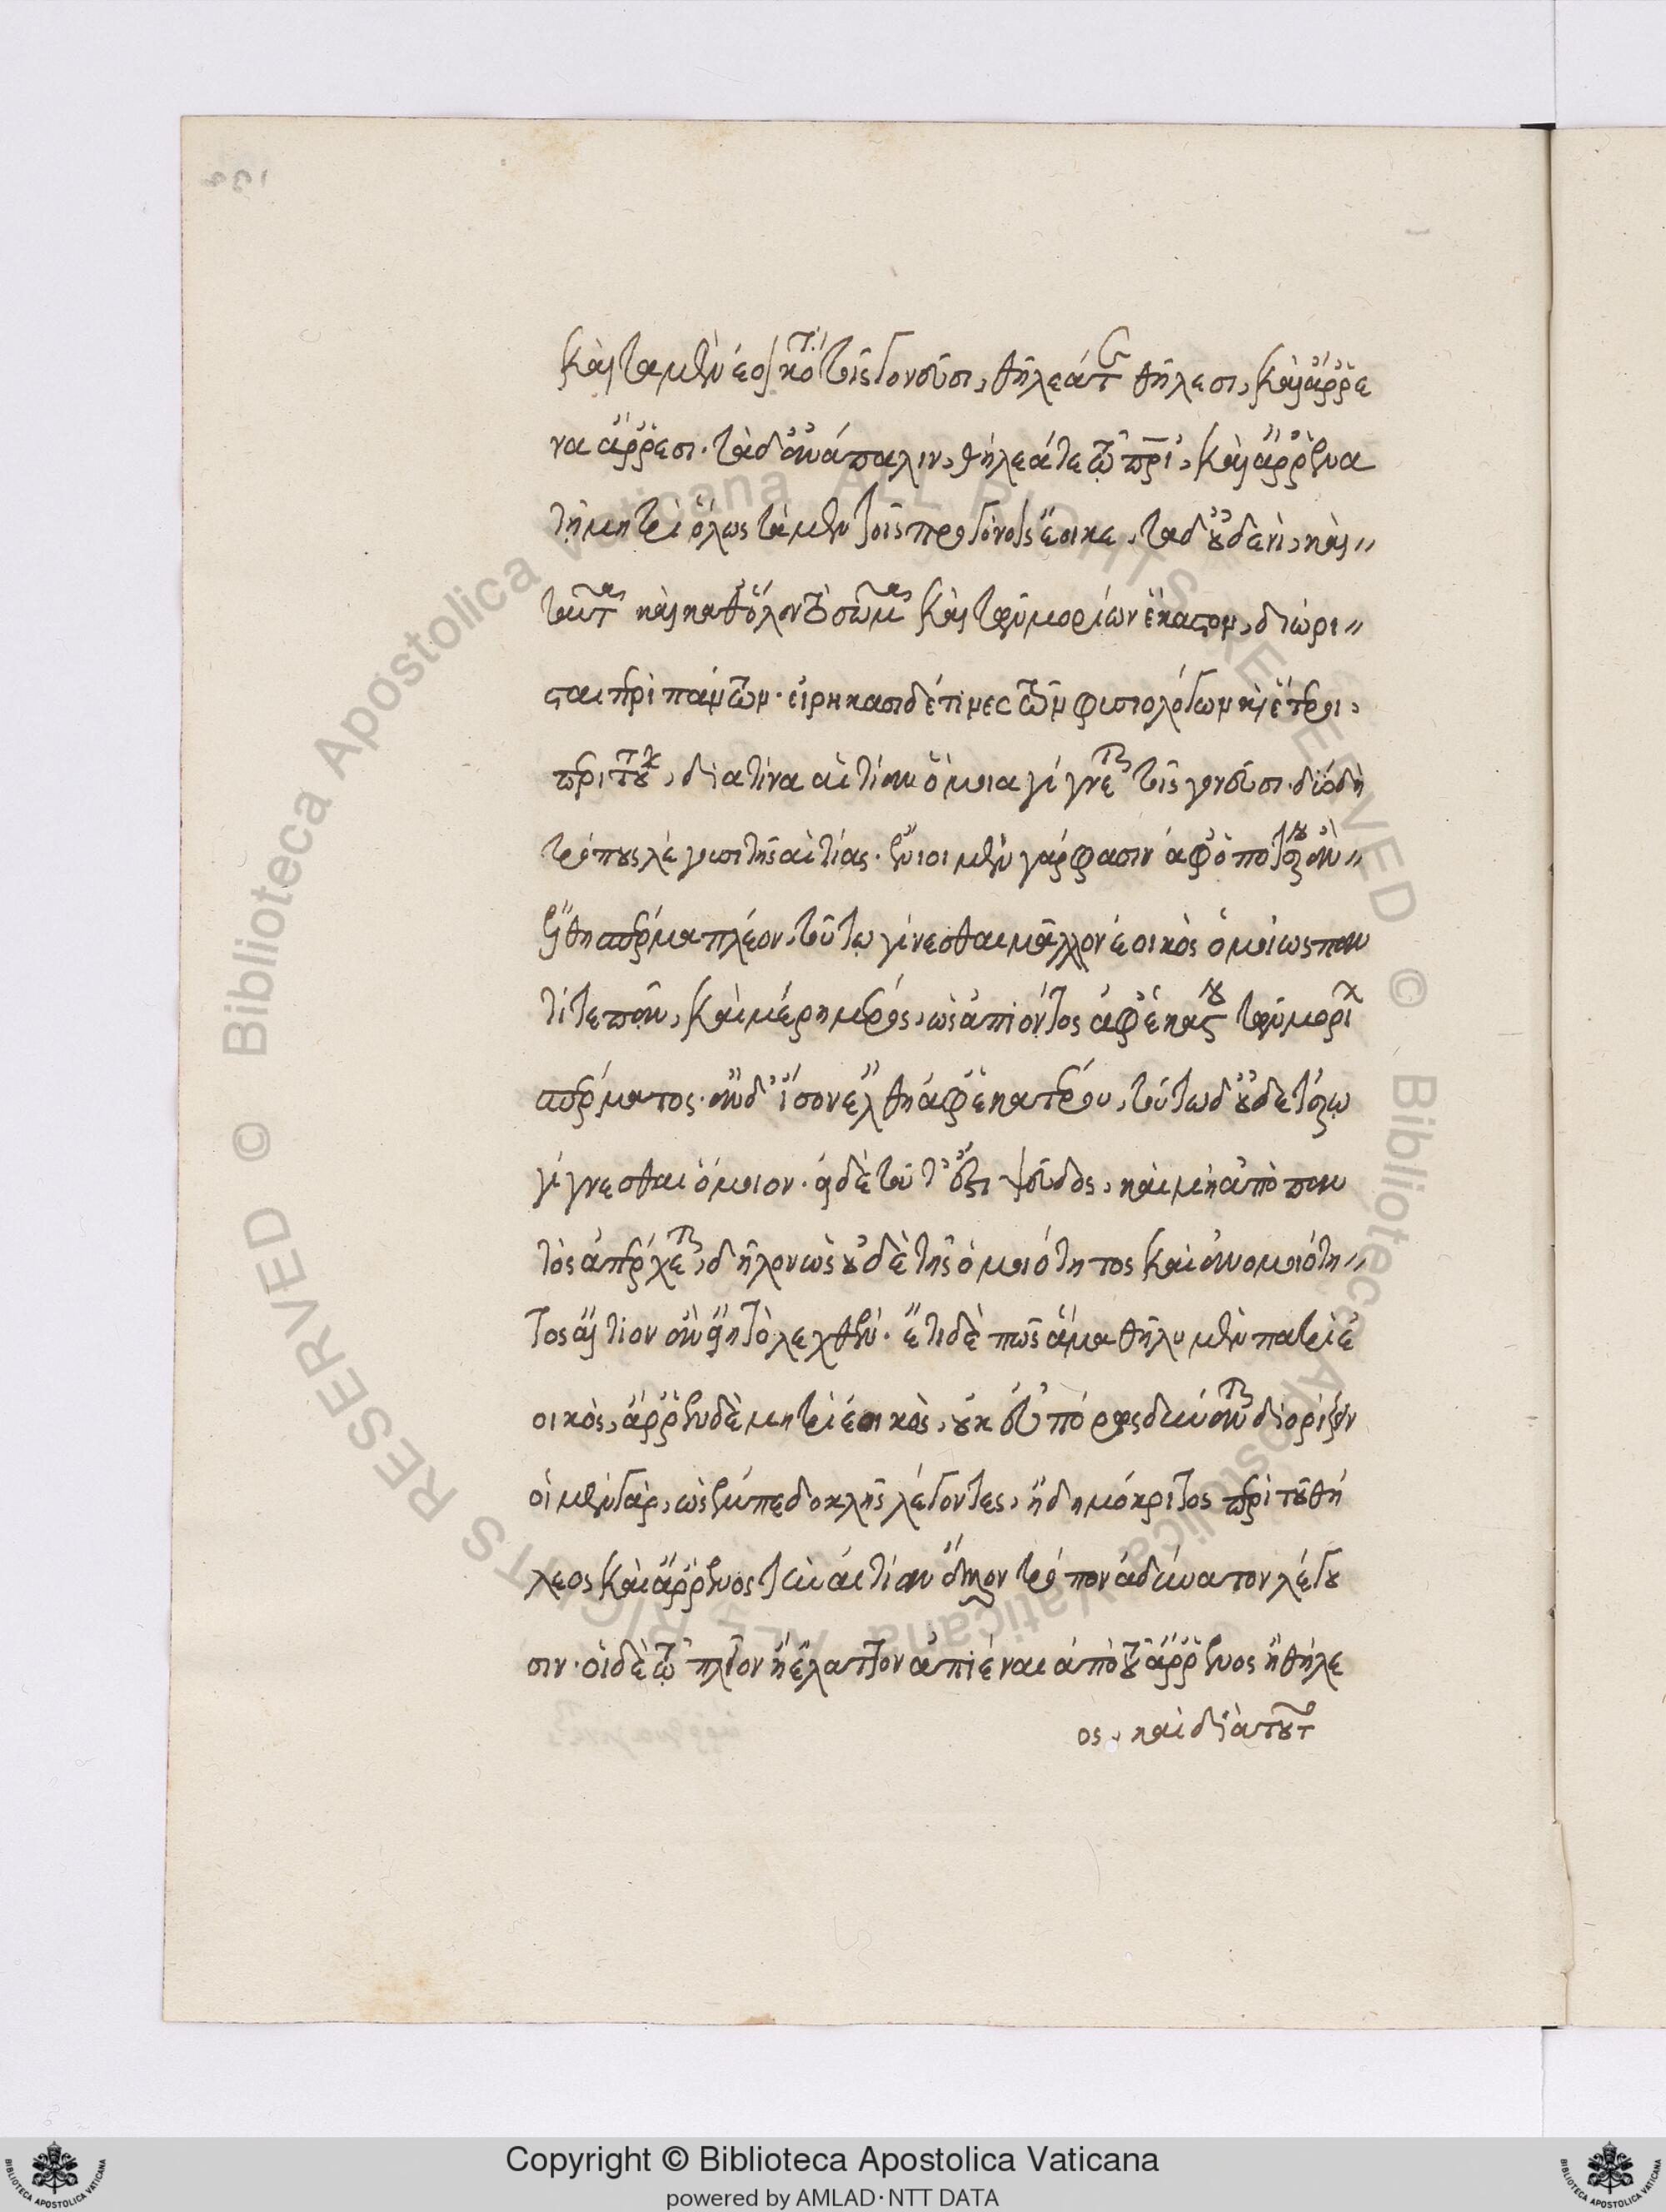 καὶ τὰ μὲν ἐοικότα τοῖς γονεῦσι, θήλεά τε θήλεσι, καὶ ἄρρε
να ἄρρεσι· τὰ δ' ἀνάπαλιν, θήλεά τε τῷ πρὶ, καὶ ἄρρενα
τῇ μητρὶ ὅλως τὰ μὲν τοῖς προγόνοις ἔοικε, τὰ δ' οὐδενὶ, καὶ
ταῦτα καὶ καθ' ὅλον τὸ σῶμα καὶ τῶν μορίων ἕκαστον, διώρι
σται περὶ πάντων· εἰρήκασι δέ τινες τῶν φυσιολόγων καὶ ἕτεροι,
περὶ τούτων, διὰ τίνα αἰτίαν ὅμοια γίγνεται τοῖς γονεῦσι· δύο δὴ
τρόπους λέγουσι τῆς αἰτίας· ἔνιοι μὲν γάρ φασιν ἀφ' ὁποτέρου ἂν
ἔλθῃ σπέρμα πλέον, τούτῳ γίνεσθαι μᾶλλον ἐοικὸς ὁμοίως παν
τί τε πᾶν, καὶ μέρη μέρος, ὡς ἀπιόντος ἀφ' ἑκάστου τῶν μορίων
σπέρματος· ἂν δ' ἴσον ἔλθῃ ἀφ' ἑκατέρου, τούτῳ δ' οὐδετέρῳ
γίγνεσθαι ὅμοιον· εἰ δὲ τοῦτ' ἐστὶ ψεῦδος, καὶ μὴ ἀπὸ παν
τὸς ἀπέρχεται, δῆλον ὡς οὐδὲ τῆς ὁμοιότητος καὶ ἀνομοιότη
τος αἴτιον ἂν εἴη τὸ λεχθέν· ἔτι δὲ πῶς ἅμα θῆλυ μὲν πατρὶ ἐ
οικὸς, ἄρρεν δὲ μητρὶ ἐοικὸς, οὐκ εὐπόρως δύνανται διορίζειν
οἱ μὲν γὰρ, ὡς ἐμπεδοκλῆς λέγοντες, ἢ δημόκριτος περὶ τοῦ θή
λεος καὶ ἄρρενος τὴν αἰτίαν ἄλλον τρόπον ἀδύνατον λέγου
σιν· οἱ δὲ τῷ πλεῖον ἢ ἔλαττον ἀπιέναι ἀπὸ τοῦ ἄρρενος ἢ θήλε
ος, καὶ διὰ τοῦτο
Copyright © Biblioteca Apostolica Vaticana
powered by AMLAD·NTT DATA